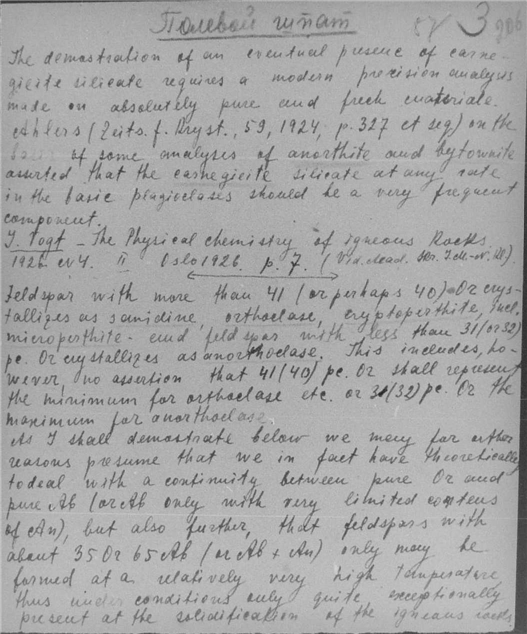 Полевой шпат 3
The demostration of an eventual presence of carne-
gieite silicate requires a modern precision analysis
made on absolutely pure and fresh materiale.
Ahlers (Zeits. f. Kryst., 59, 1924, p. 327 et seg) on the
of some analyses of anorthite and bytownite
asserted that the carnegieite silicate at any rate
in the basic plagioclases should be a very frequent
component.
J. Vogt – The Physical chemistry of igneous Rocks
1926 N4. II Oslo 1926 p. 7. (Vid. Akad. Skr. I M.-N. Kl).
Feldspar with more than 41 (or perhaps 40) Or crys-
tallizes as sanidine, orthoclase, cryptoperthite, incl.
microperthite - and feldspar with less than 31 (or 32)
pc. Or crystallizes as anorthoclase. This includes, ho-
wever, no assertion that 41 (40) pc. Or shall represent
the minimum for orthoclase etc. or 31 (32) pc. Or the
maximum for anorthoclase.
As I shall demostrate below we may for other
reasons presume that we in fact have theoretically
to deal with a continuity between pure Or and
pure Ab (or Ab only with very limited contens
of An), but also further, that feldspars with
about 35 Or 65 Ab (or Ab + An) only may be
formed at a relatively very high temperature
thus under conditions only quite exceptionally
present at the solidification of the igneous rocks.